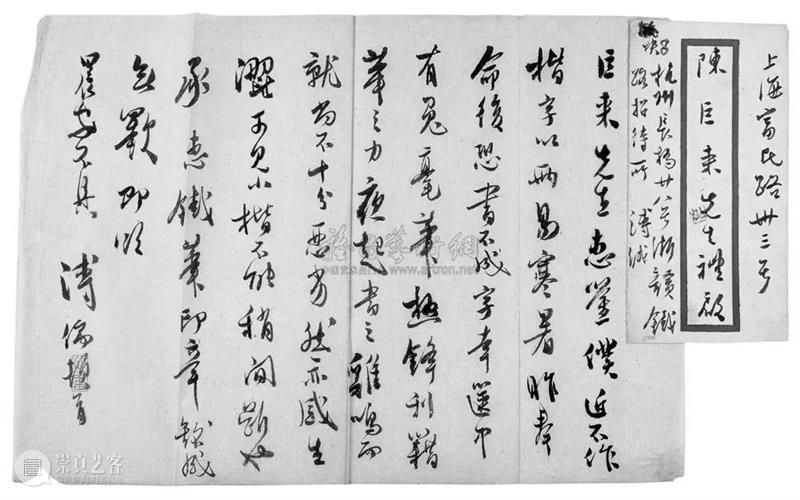 上海富民路卅三号
陳巨来先生禮啟
杭州長橋廿八号浙贛鐵
路招待所 溥緘
巨来先生惠鑒僕近不作
楷字以兩易寒暑昨奉
命後恐書不成字幸篋中
有兔毫筆極鋒利藉
筆之力夜起書之雞鳴而
就尚不十分惡劣然亦感生
澀可見小楷不能稍间斷也
承惠鐵筆印章銘感
無斁即頌
晨安不具 溥儒頓首
www.artron.net
崇真艺客